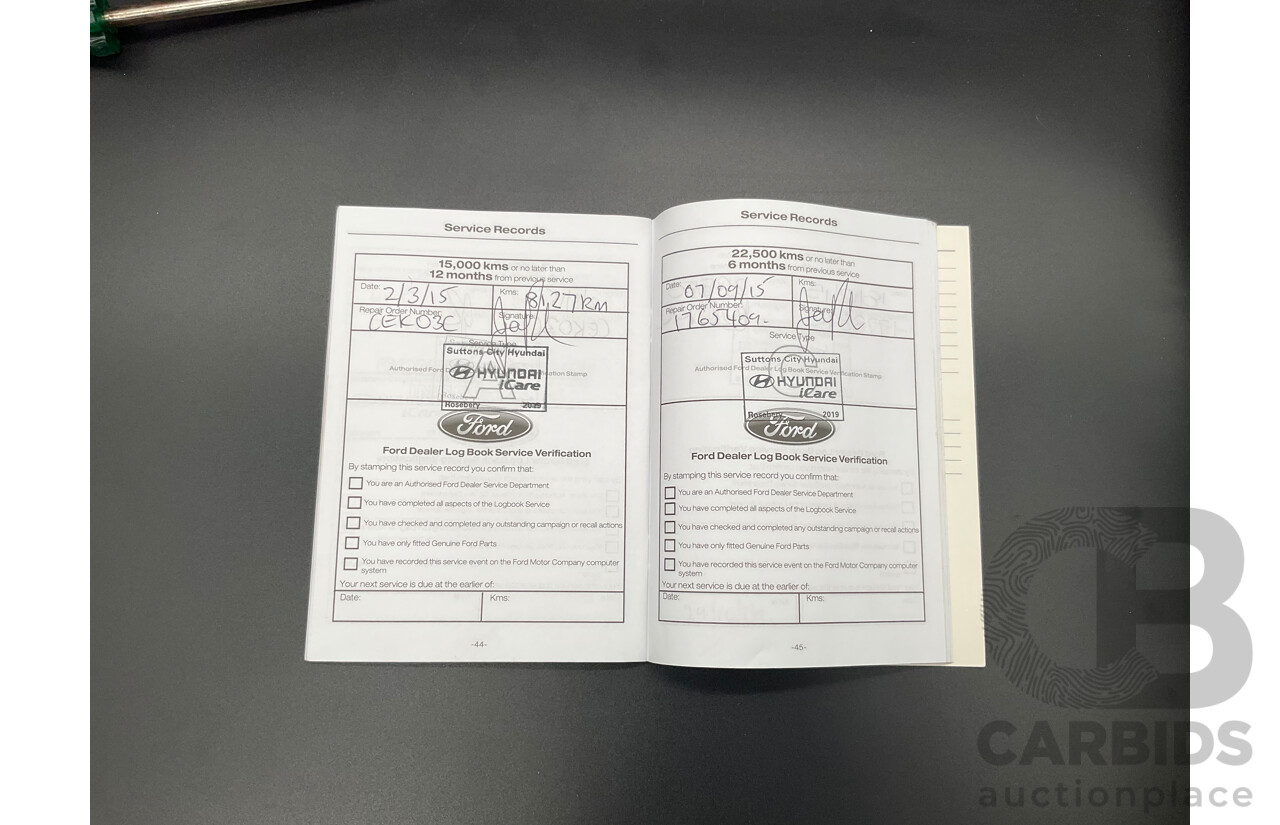 Service Records
15,000 kms or no later than
12 months from previous service
Date: 2/3/15 Kms: 8127KM
Repair Order Number: CEKO3C Signature:
Service Type
Suttons City Hyundai
Authorised Ford D ication Stamp
A
HYUNDAI
iCare
Rosebery 2019
Ford
Ford Dealer Log Book Service Verification
By stamping this service record you confirm that:
You are an Authorised Ford Dealer Service Department
You have completed all aspects of the Logbook Service
You have checked and completed any outstanding campaign or recall actions
You have only fitted Genuine Ford Parts
You have recorded this service event on the Ford Motor Company computer
system
Your next service is due at the earlier of:
Date: Kms:
-44-
Service Records
22,500 kms or no later than
6 months from previous service
Date: 07/09/15 Kms:
Repair Order Number: 1765409- Signature:
Service Type
Suttons City Hyundai
Authorised Ford Dealer Log Book Service Verification Stamp
C
HYUNDAI
iCare
Rosebery 2019
Ford
Ford Dealer Log Book Service Verification
By stamping this service record you confirm that:
You are an Authorised Ford Dealer Service Department
You have completed all aspects of the Logbook Service
You have checked and completed any outstanding campaign or recall actions
You have only fitted Genuine Ford Parts
You have recorded this service event on the Ford Motor Company computer
system
Your next service is due at the earlier of:
Date: Kms:
-45-
CB
CARBIDS
auctionplace